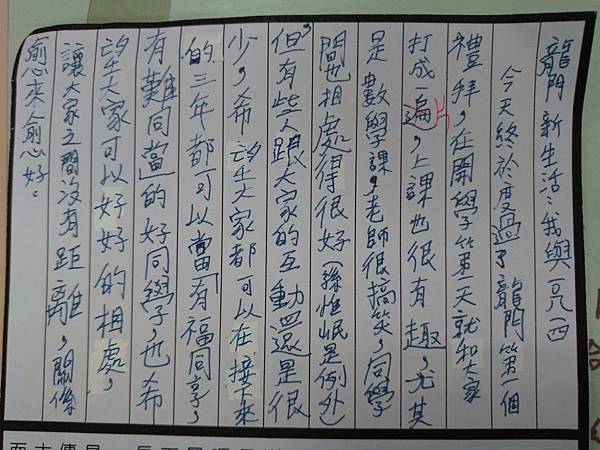 龍門新生活:我與一〇四
今天終於度過了龍門第一個
禮拜,在開學第一天就和大家
打成一遍片,上課也很有趣,尤其
是數學課,老師很搞笑,同學
間也相處得很好(孫惟岷是例外),
但有些人跟大家的互動還是很
少,希望大家都可以在接下來
的三年都可以當「有福同享,
有難同當」的好同學,也希
望大家可以好好的相處,
讓大家之間沒有距離,關係
愈來愈好。